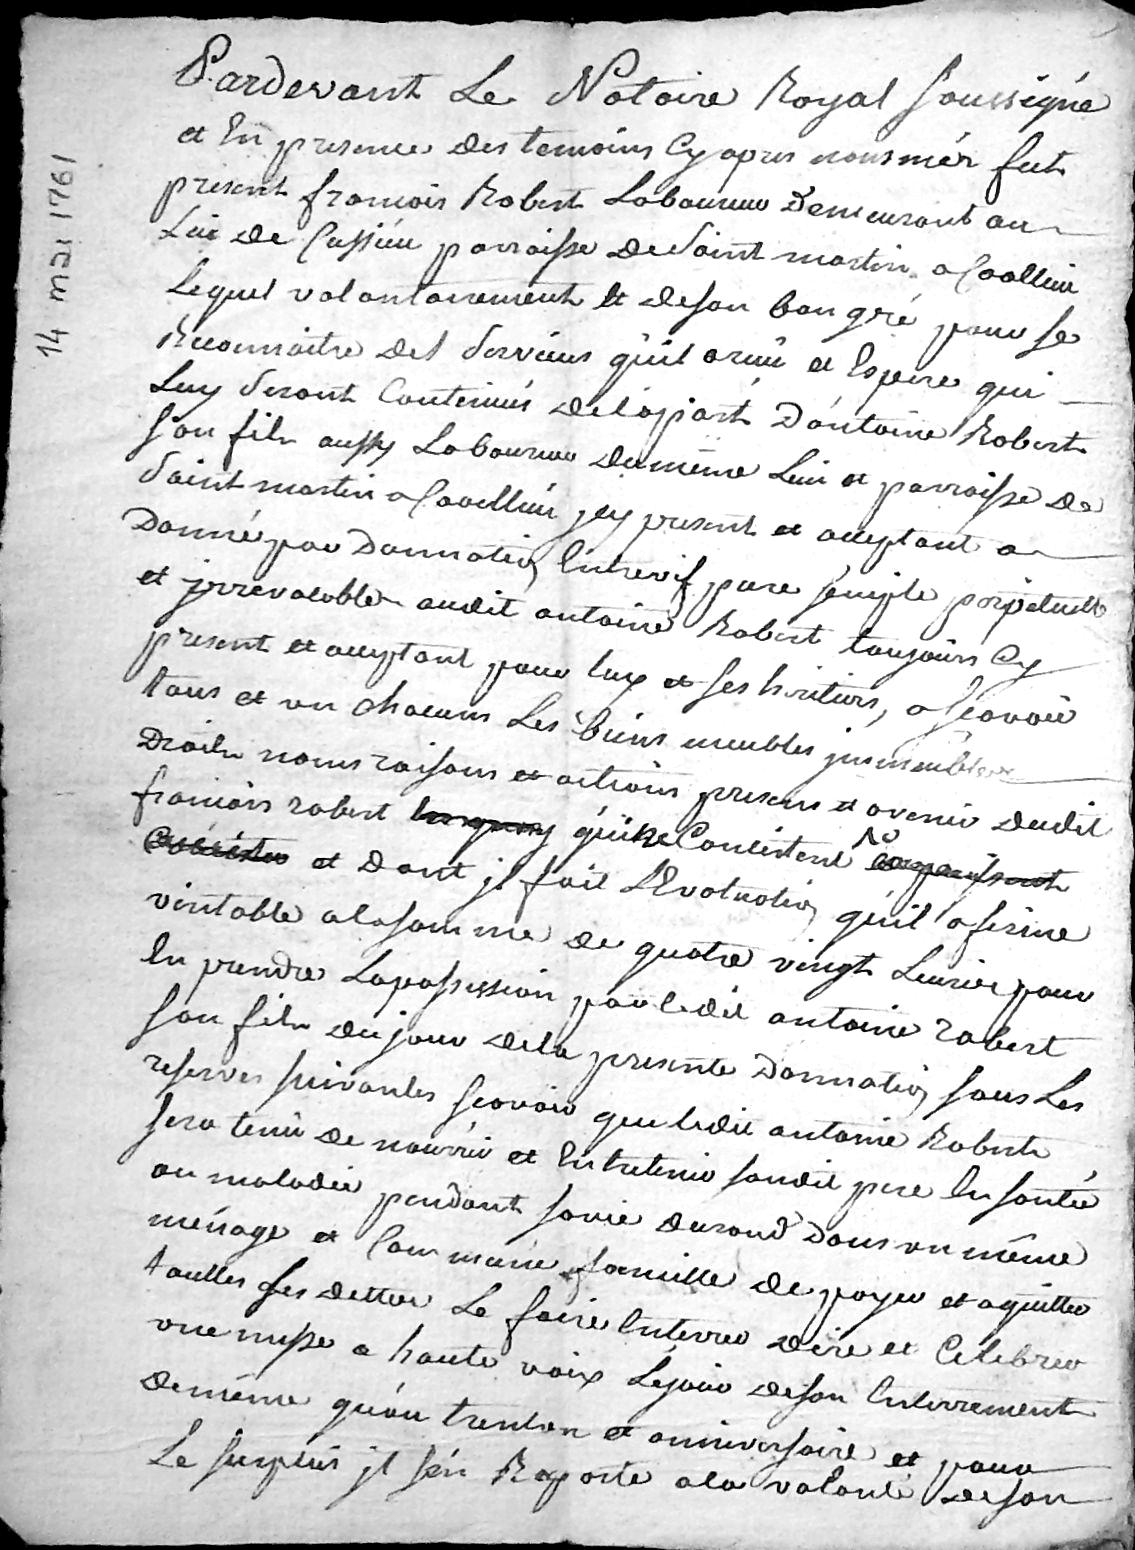 14 mai 1761
Pardevant Le Notoire Royal soussigné
et En presence des temoins Cy apres nommér fut
present francois Robert Laboureur Demeurant au
Lui de Cussieu parroisse de Saint martin a Coallieu
Lequel volontairement et deson bon gré pour se
Reconnoitre des services quil a recü et Espere qui
Luy seront Continués delapart D'antoine Robert
son fils aussy Laboureur dumême Lui et parroisse de
Saint martin a Coallieu jcy present et aceptant a
Donné par Donnation Entrevif pure simple perpetuelle
et jrrevocable audit antoine Robert toujours Cy
present et aceptant pour luy et ses heritiers, a scavoir
tous et un chacuns Les biens meubles jmmeubles
Droits noms raisons et actions presens et avenir dudit
francois robert quii ne Consistent
et Dont jl fait LEvaluation quil afirme
veritable alasomme de quatre vingt Livres pour
En prendre Lapossession par ledit antoine robert
son fils dujour dela presente Donnation sous Les
reserves suivantes scavoir que ledit antoine Robert
sera tenü de nourrir et Entretenir sondit pere En santée
ou maladie pendant savie durand Dans un même
ménage et Commune famille de payer et aquitter
toutles ses dettes Le faire Enterrer dire et Celebrer
une messe a haute voix Lejour deson Enterrement
demême qu'au trenten et anniversaire et pour
Le surplus jl s'en Raporte ala volonté deson